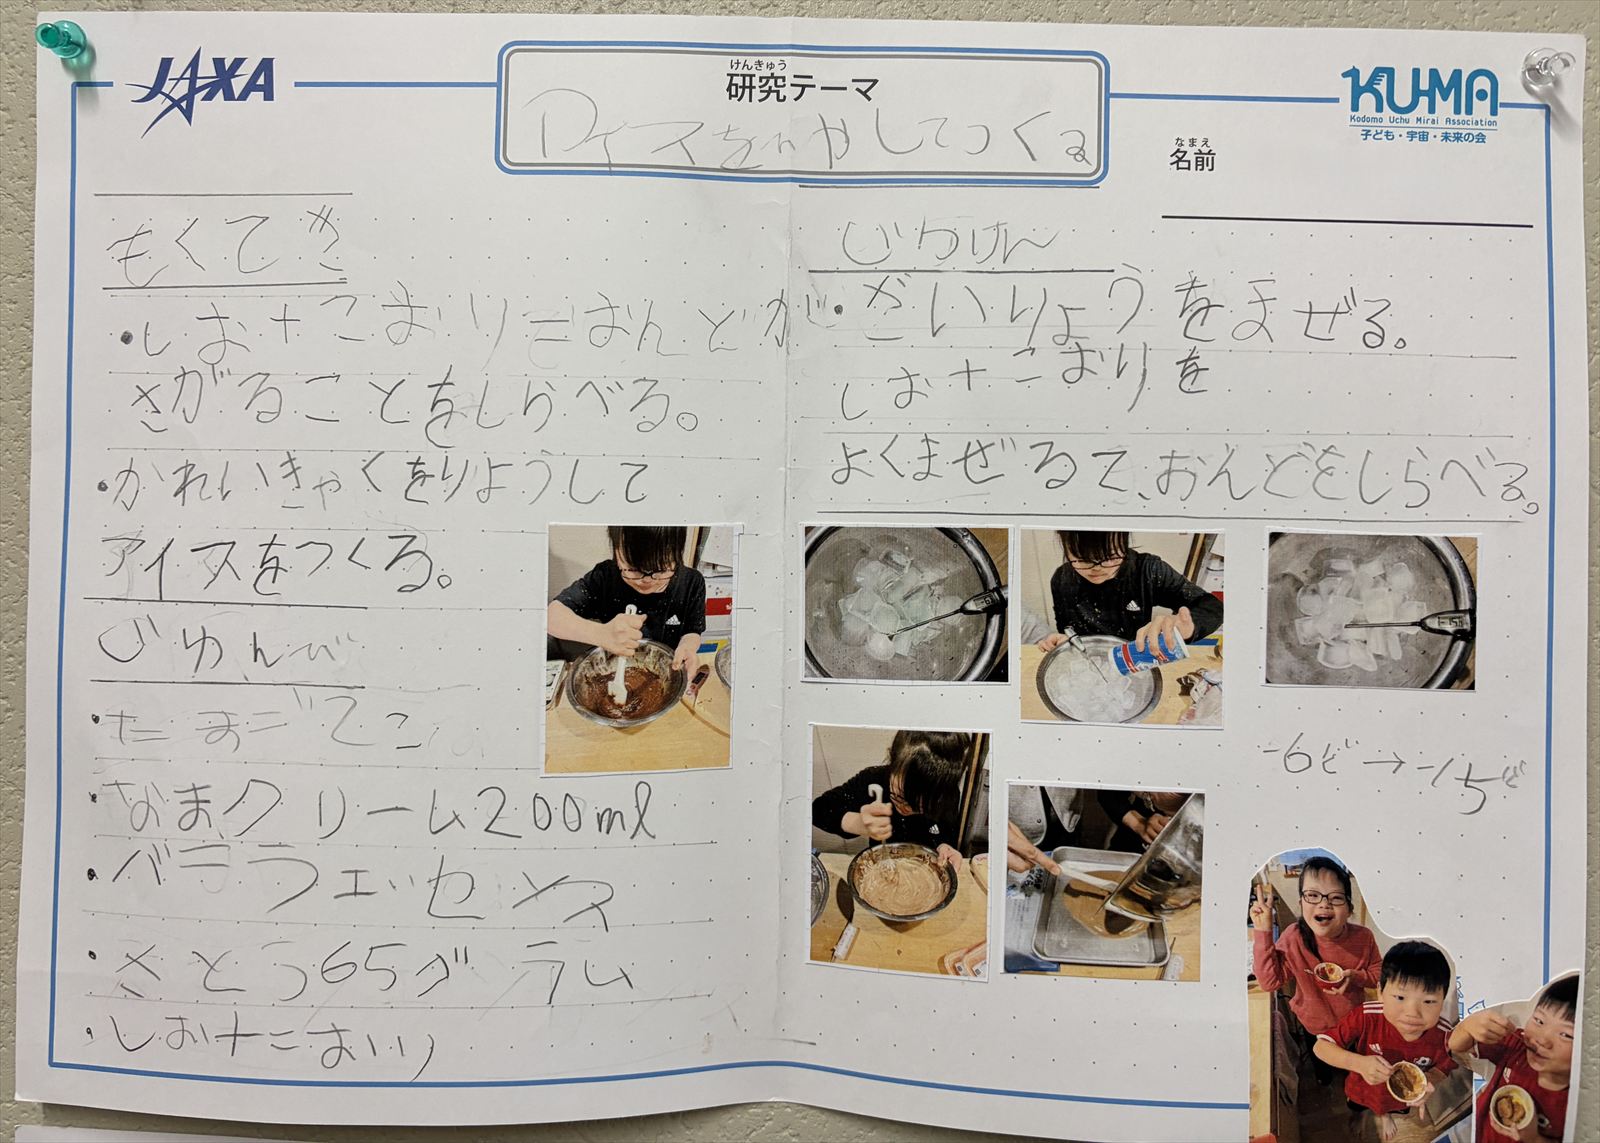 JAXA
けんきゅう
研究テーマ
アイスをひやしてつくる
KU-MA
Kodomo Uchu Mirai Association
子ども・宇宙・未来の会
なまえ
名前
もくてき
・しお+こおりでおんどが
さがることをしらべる。
・かれいきゃくをりようして
アイスをつくる。
じゅんび
・たまご2こ
・なまクリーム200ml
・バニラエッセンス
・さとう65グラム
・しお+こおり
じっけん
・ざいりょうをまぜる。
しお+こおりを
よくまぜるて、おんどをしらべる。
-6ど→-15ど